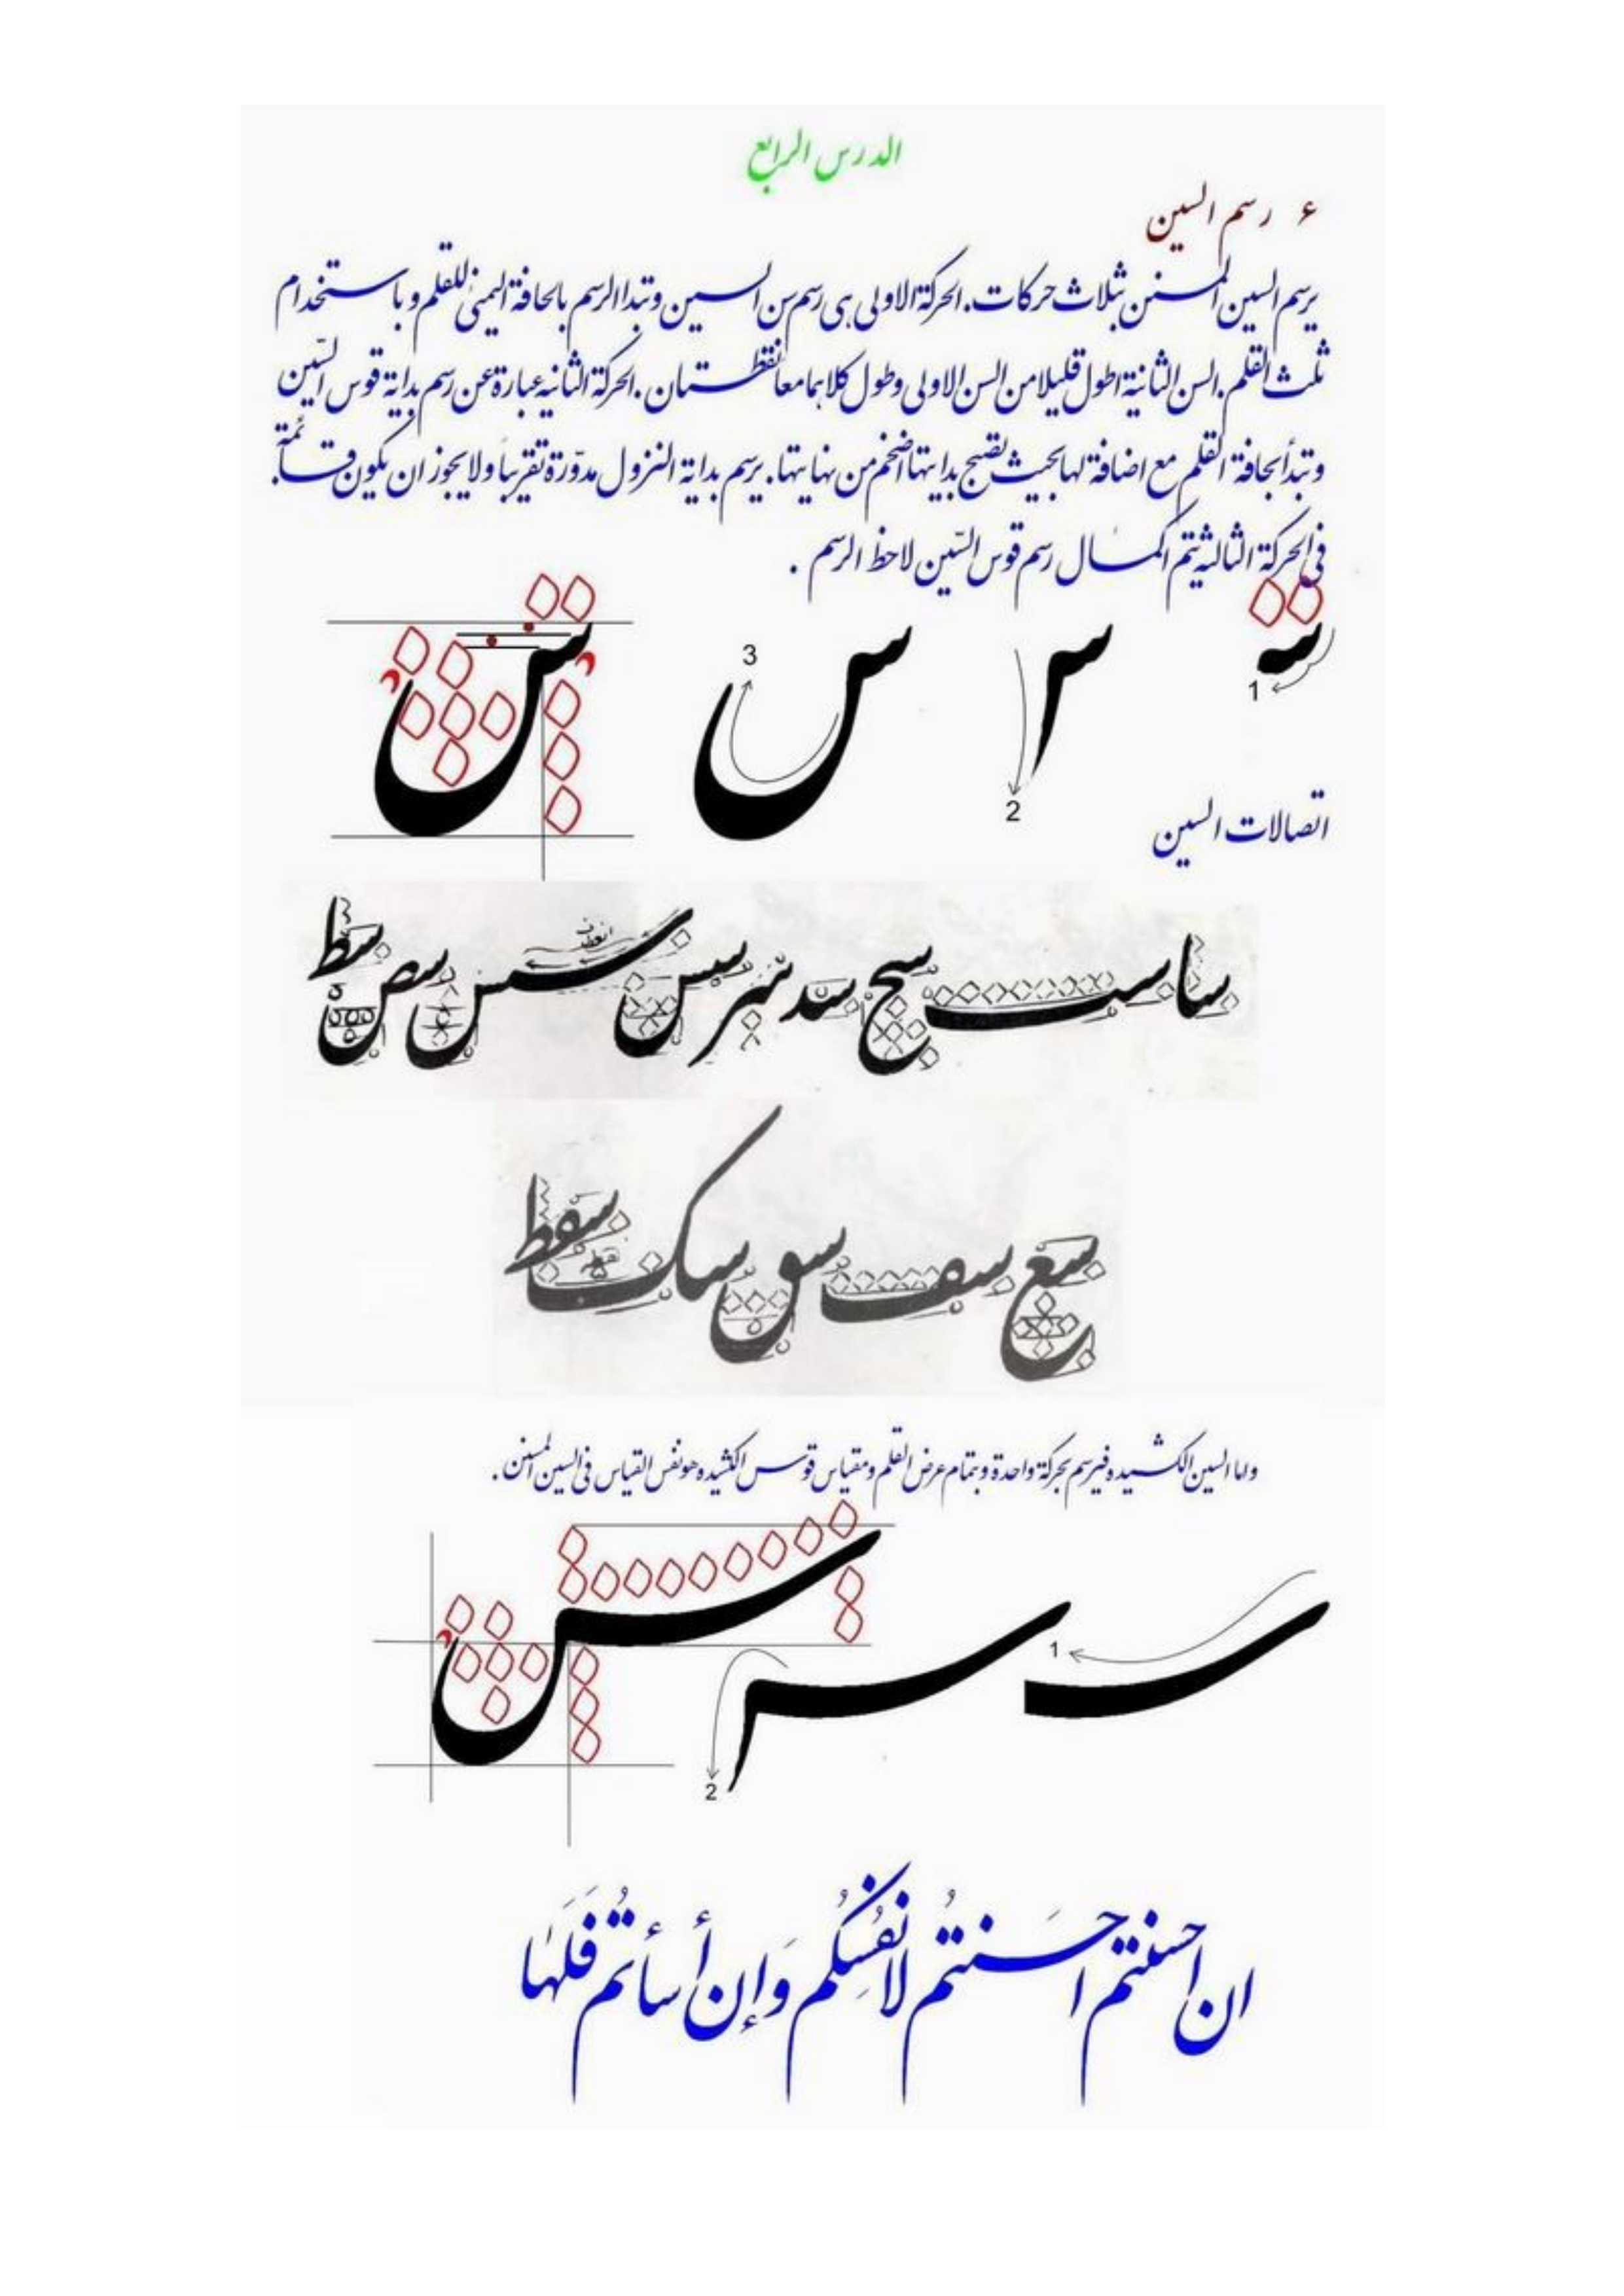 الدرس الرابع
٤ رسم السين
يرسم السين المسنن بثلاث حركات. الحركة الاولى هى رسم سن السين وتبدا الرسم بالحافة اليمنى للقلم و باستخدام
ثلث القلم. السن الثانية اطول قليلا من السن الاولى وطول كلاهما معا نقطتان. الحركة الثانيه عبارة عن رسم بداية قوس السّين
وتبدأ بحافة القلم مع اضافة لها بحيث تصبح بدايتها أضخم من نهايتها. يرسم بداية النزول مدوّرة تقريباً ولا يجوز ان يكون قائمة.
فى الحركة الثالثة يتم اكمال رسم قوس السّين لاحظ الرسم .
1
2
3
اتصالات السين
سا ست سج سد سر سس سس سص سط
سع سف سق سک سقط
واما السين الكشيده فيرسم بحركة واحدة وبتمام عرض القلم ومقياس قوس الكشيده هو نفس القياس فى السين المسنن .
1
2
ان احسنتم احسَنتُم لانفُسِكُم وَإن أسأتُم فَلَها